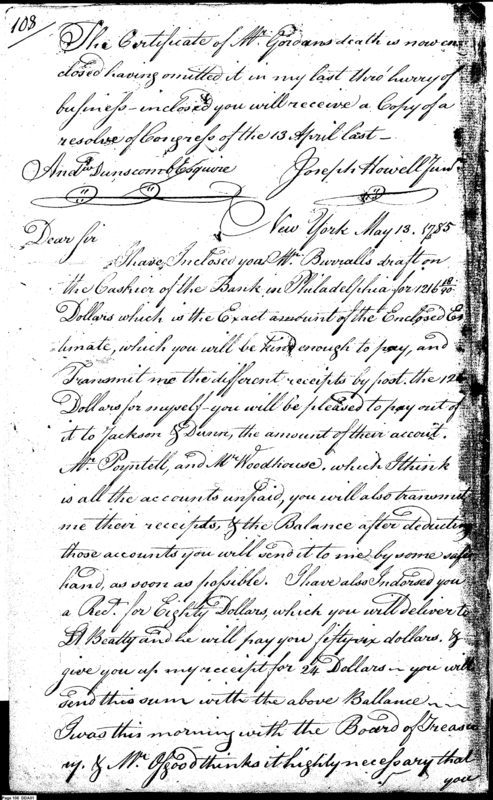 108
The Certificate of Mr. Gordans death is now en
closed having omitted it in my last thro hurry of
business - inclosed you will receive a Copy of a
resolve of Congress of the 13 April last -
Andw. Dunscomb Esquire Joseph Howell Junr
New York May 13. 1785
Dear Sir
I have Inclosed you Mr. Burralls draft on
the Cashier of the Bank in Philadelphia for 1216 18/90
Dollars which is the Exact amount of the Enclosed Es
timate, which you will be kind enough to pay, and
Transmit me the different receipts by post. the
Dollars for myself - you will be pleased to pay out of
it to Jackson & Dunn, the amount of their account.
Mr. Poyntell, and Mr. Woodhouse. which I think
is all the accounts unpaid, you will also transmit
me their receipts, & the Balance after deducting
those accounts you will send it to me by some safe
hand, as soon as possible. I have also Indorsed you
a Rect. for Eighty Dollars, which you will deliver to
Lt Beatty and he will pay you fifty six dollars. &
give you up my receipt for 24 Dollars ~ you will
send this sum with the above Ballance ~
I was this morning with the Board of Treasu
ry. & Mr. Osgood thinks it highly necessary that
you
Page 108